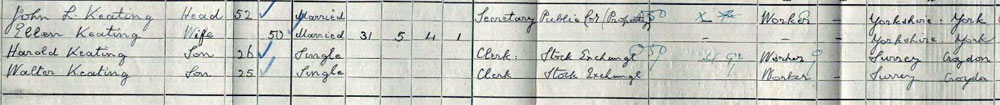 John L. Keating Head 52 Married Secretary Public Co/ (Property) 050 Worker - Yorkshire: York
Ellen Keating Wife 50 Married 31 5 4 1 - - - Yorkshire: York
Harold Keating Son 26 Single Clerk: Stock Exchange 050 Worker - Surrey Croydon
Walter Keating Son 25 Single Clerk Stock Exchange Worker - Surrey Croydon